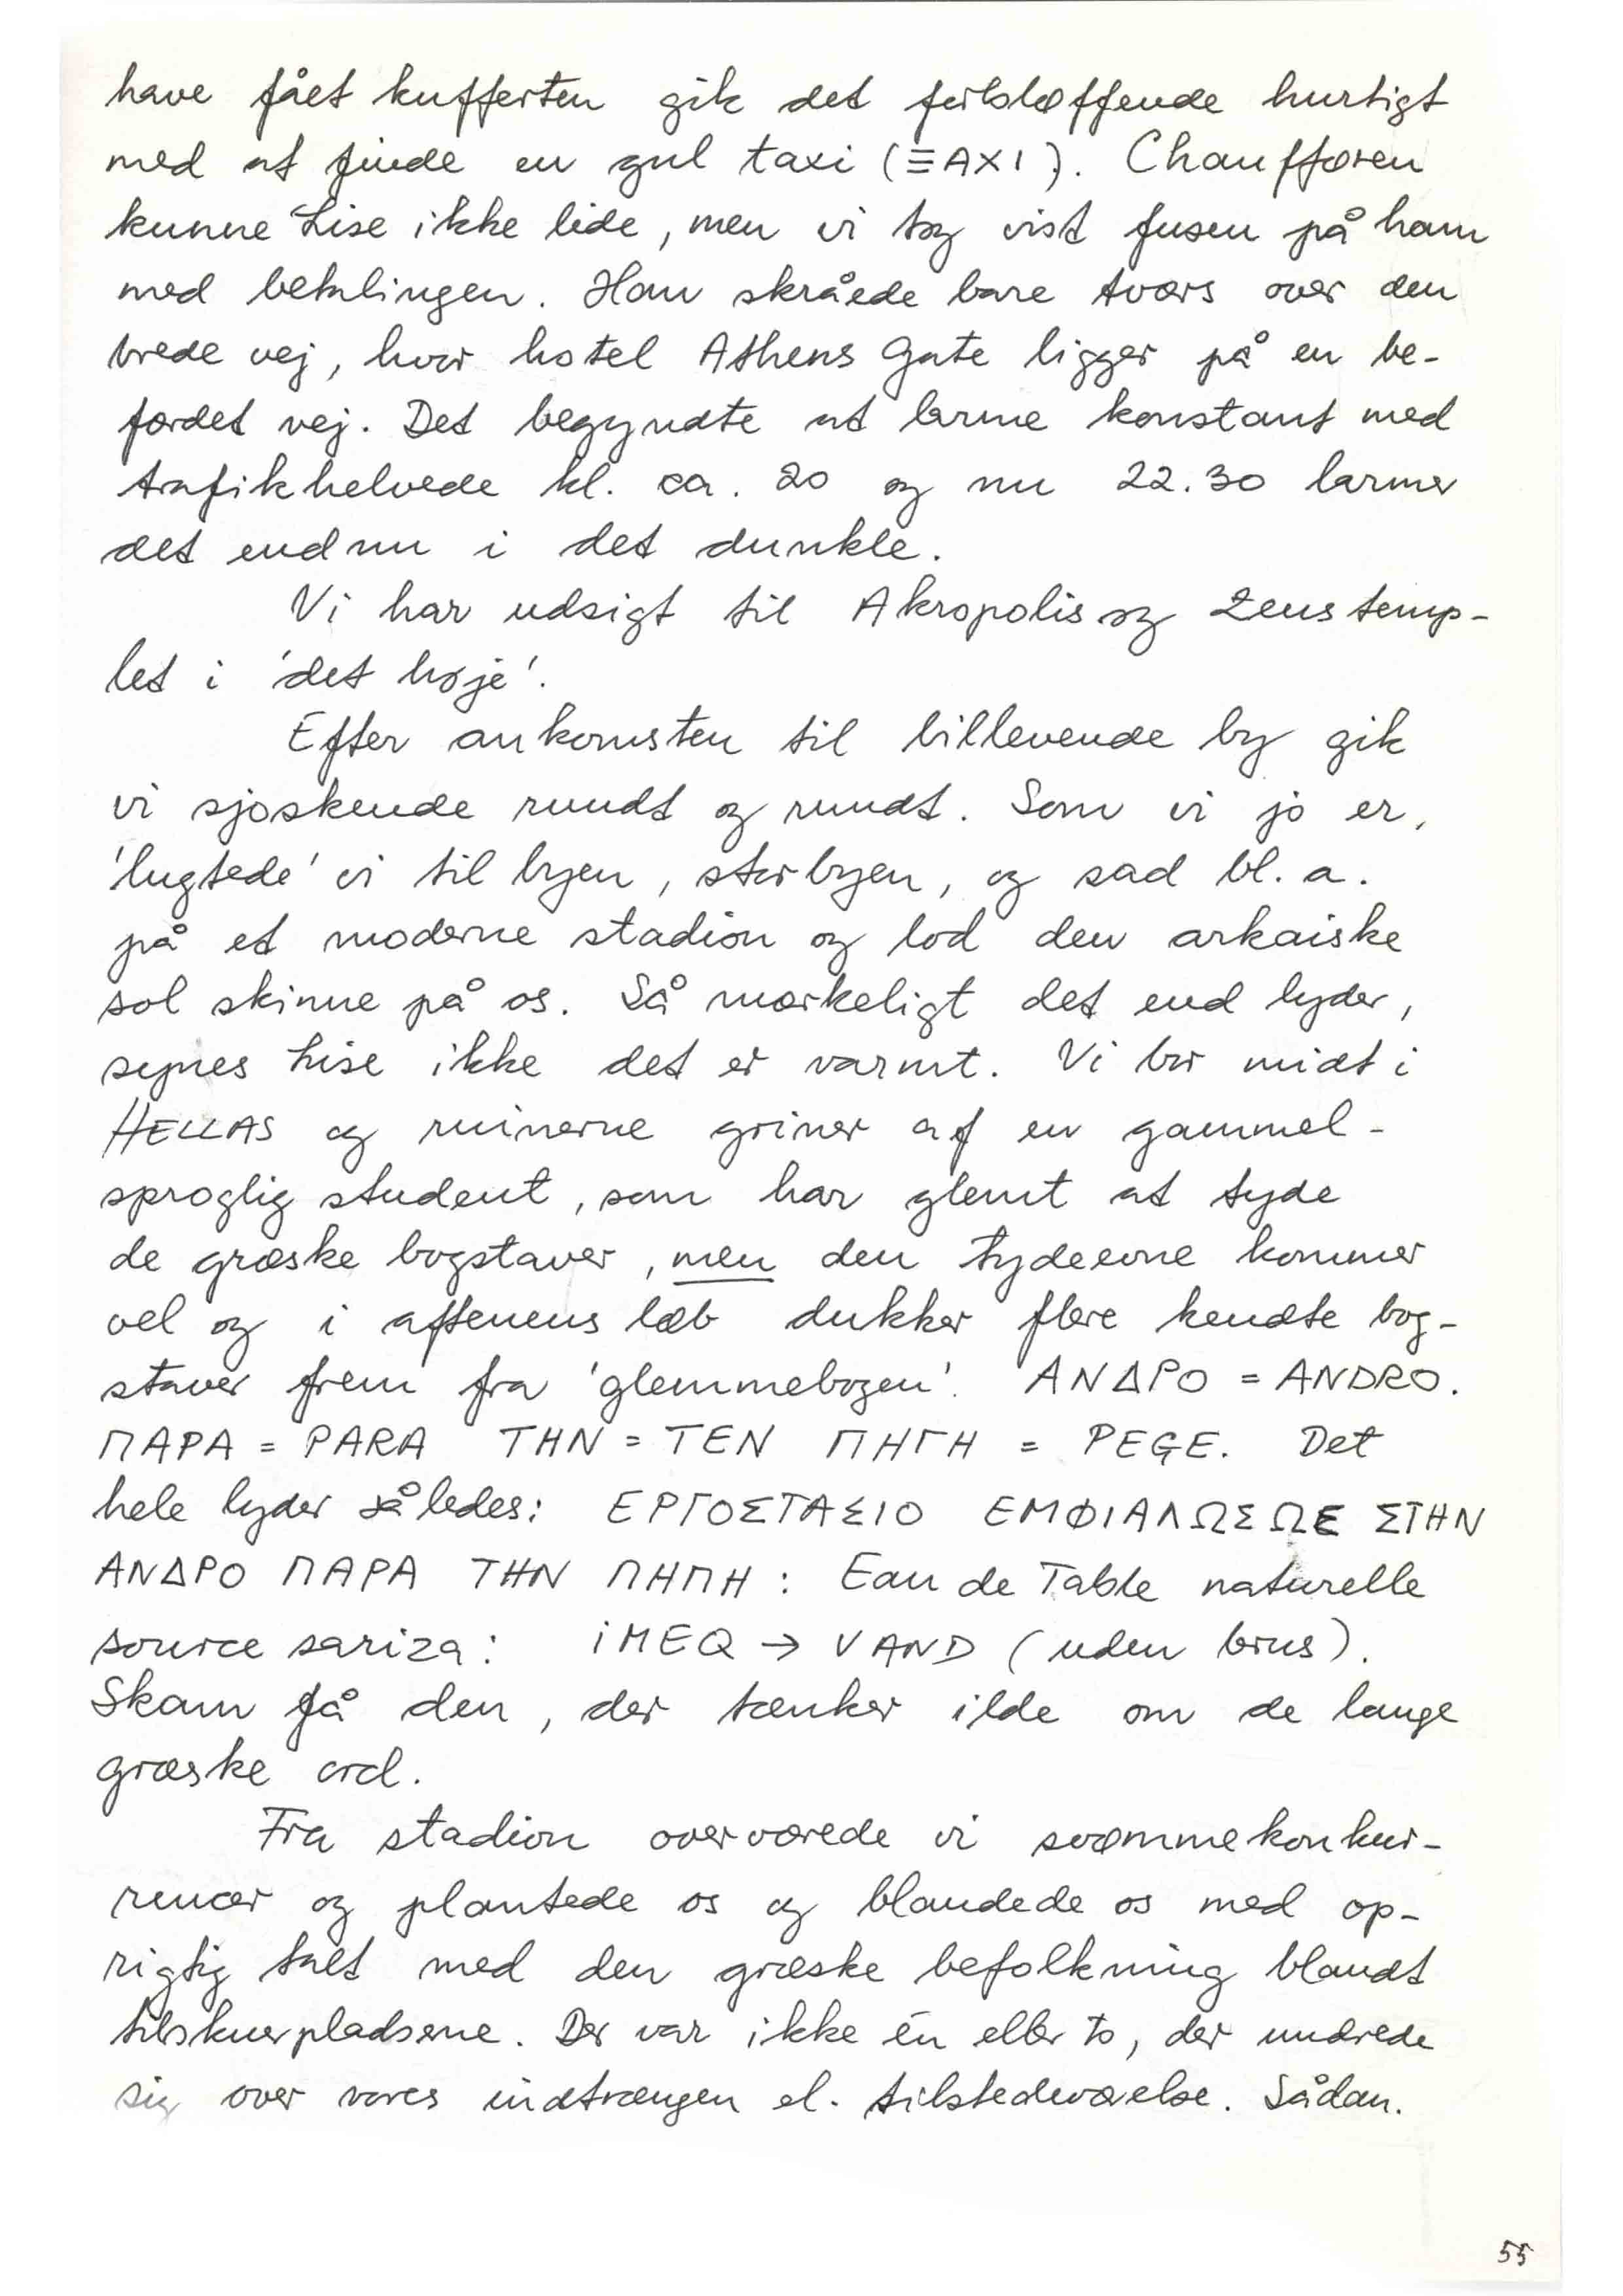 have fået kufferten gik det forbløffende hurtigt
med at finde en gul taxi (ΞAXI). Chaufføren
kunne Lise ikke lide, men vi tog vist fusen på ham
med betalingen. Han skråede bare tværs over den
brede vej, hvor hotel Athens Gate ligger på en be-
færdet vej. Det begyndte at larme konstant med
trafikhelvede kl. ca. 20 og nu 22.30 larmer
det endnu i det dunkle.
Vi har udsigt til Akropolis og Zeustemp-
let i 'det høje'.
Efter ankomsten til billevende by gik
vi sjoskende rundt og rundt. Som vi jo er,
'lugtede' vi til byen, storbyen, og sad bl. a.
på et moderne stadion og lod den arkaiske
sol skinne på os. Så mærkeligt det end lyder,
synes Lise ikke det er varmt. Vi bor midt i
HELLAS og ruinerne griner af en gammel-
sproglig student, som har glemt at tyde
de græske bogstaver, men den tydeevne kommer
vel og i aftenens løb dukker flere kendte bog-
staver frem fra 'glemmebogen'. ΑΝΔΡΟ = ANDRO.
ΠΑΡΑ = PARA ΤΗΝ = TEN ΠΗΓΗ = PEGE. Det
hele lyder således: ΕΡΓΟΣΤΑΣΙΟ ΕΜΦΙΑΛΩΣΩΕ ΣΤΗΝ
ΑΝΔΡΟ ΠΑΡΑ ΤΗΝ ΠΗΠΗ : Eau de Table naturelle
source sariza: iMEQ → VAND (uden brus).
Skam få den, der tænker ilde om de lange
græske ord.
Fra stadion overværede vi svømmekonkur-
rencer og plantede os og blandede os med op-
rigtig talt med den græske befolkning blandt
tilskuerpladserne. Der var ikke én eller to, der undrede
sig over vores indtrængen el. tilstedeværelse. Sådan.
55